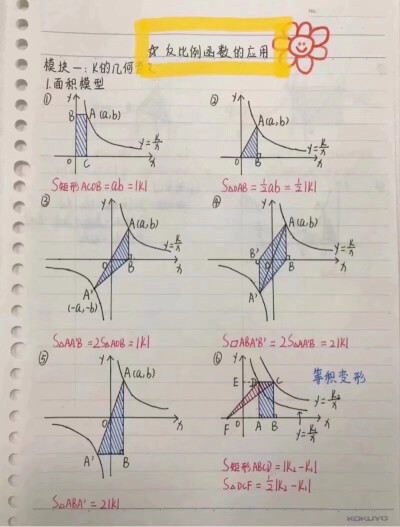 ☆ 反比例函数的应用
模块一：K的几何
1.面积模型
①
y
B
A(a,b)
y=k/x
O
C
x
S矩形ACOB=ab=|K|
②
y
A(a,b)
y=k/x
O
B
x
S△OAB=½ab=½|K|
③
y
A(a,b)
y=k/x
O
B
x
A'
(-a,-b)
S△AA'B=2S△AOB=|K|
④
y
A(a,b)
y=k/x
B'
O
B
x
A'
S□ABA'B'=2S△AA'B=2|K|
⑤
y
A(a,b)
O
x
A'
B
S△ABA'=2|K|
⑥
y
等积变形
E
D
C
y=k₂/x
F
O
A
B
x
y=k₁/x
S矩形ABCD=|K₂-K₁|
S△DCF=½|K₂-K₁|
KOKUYO